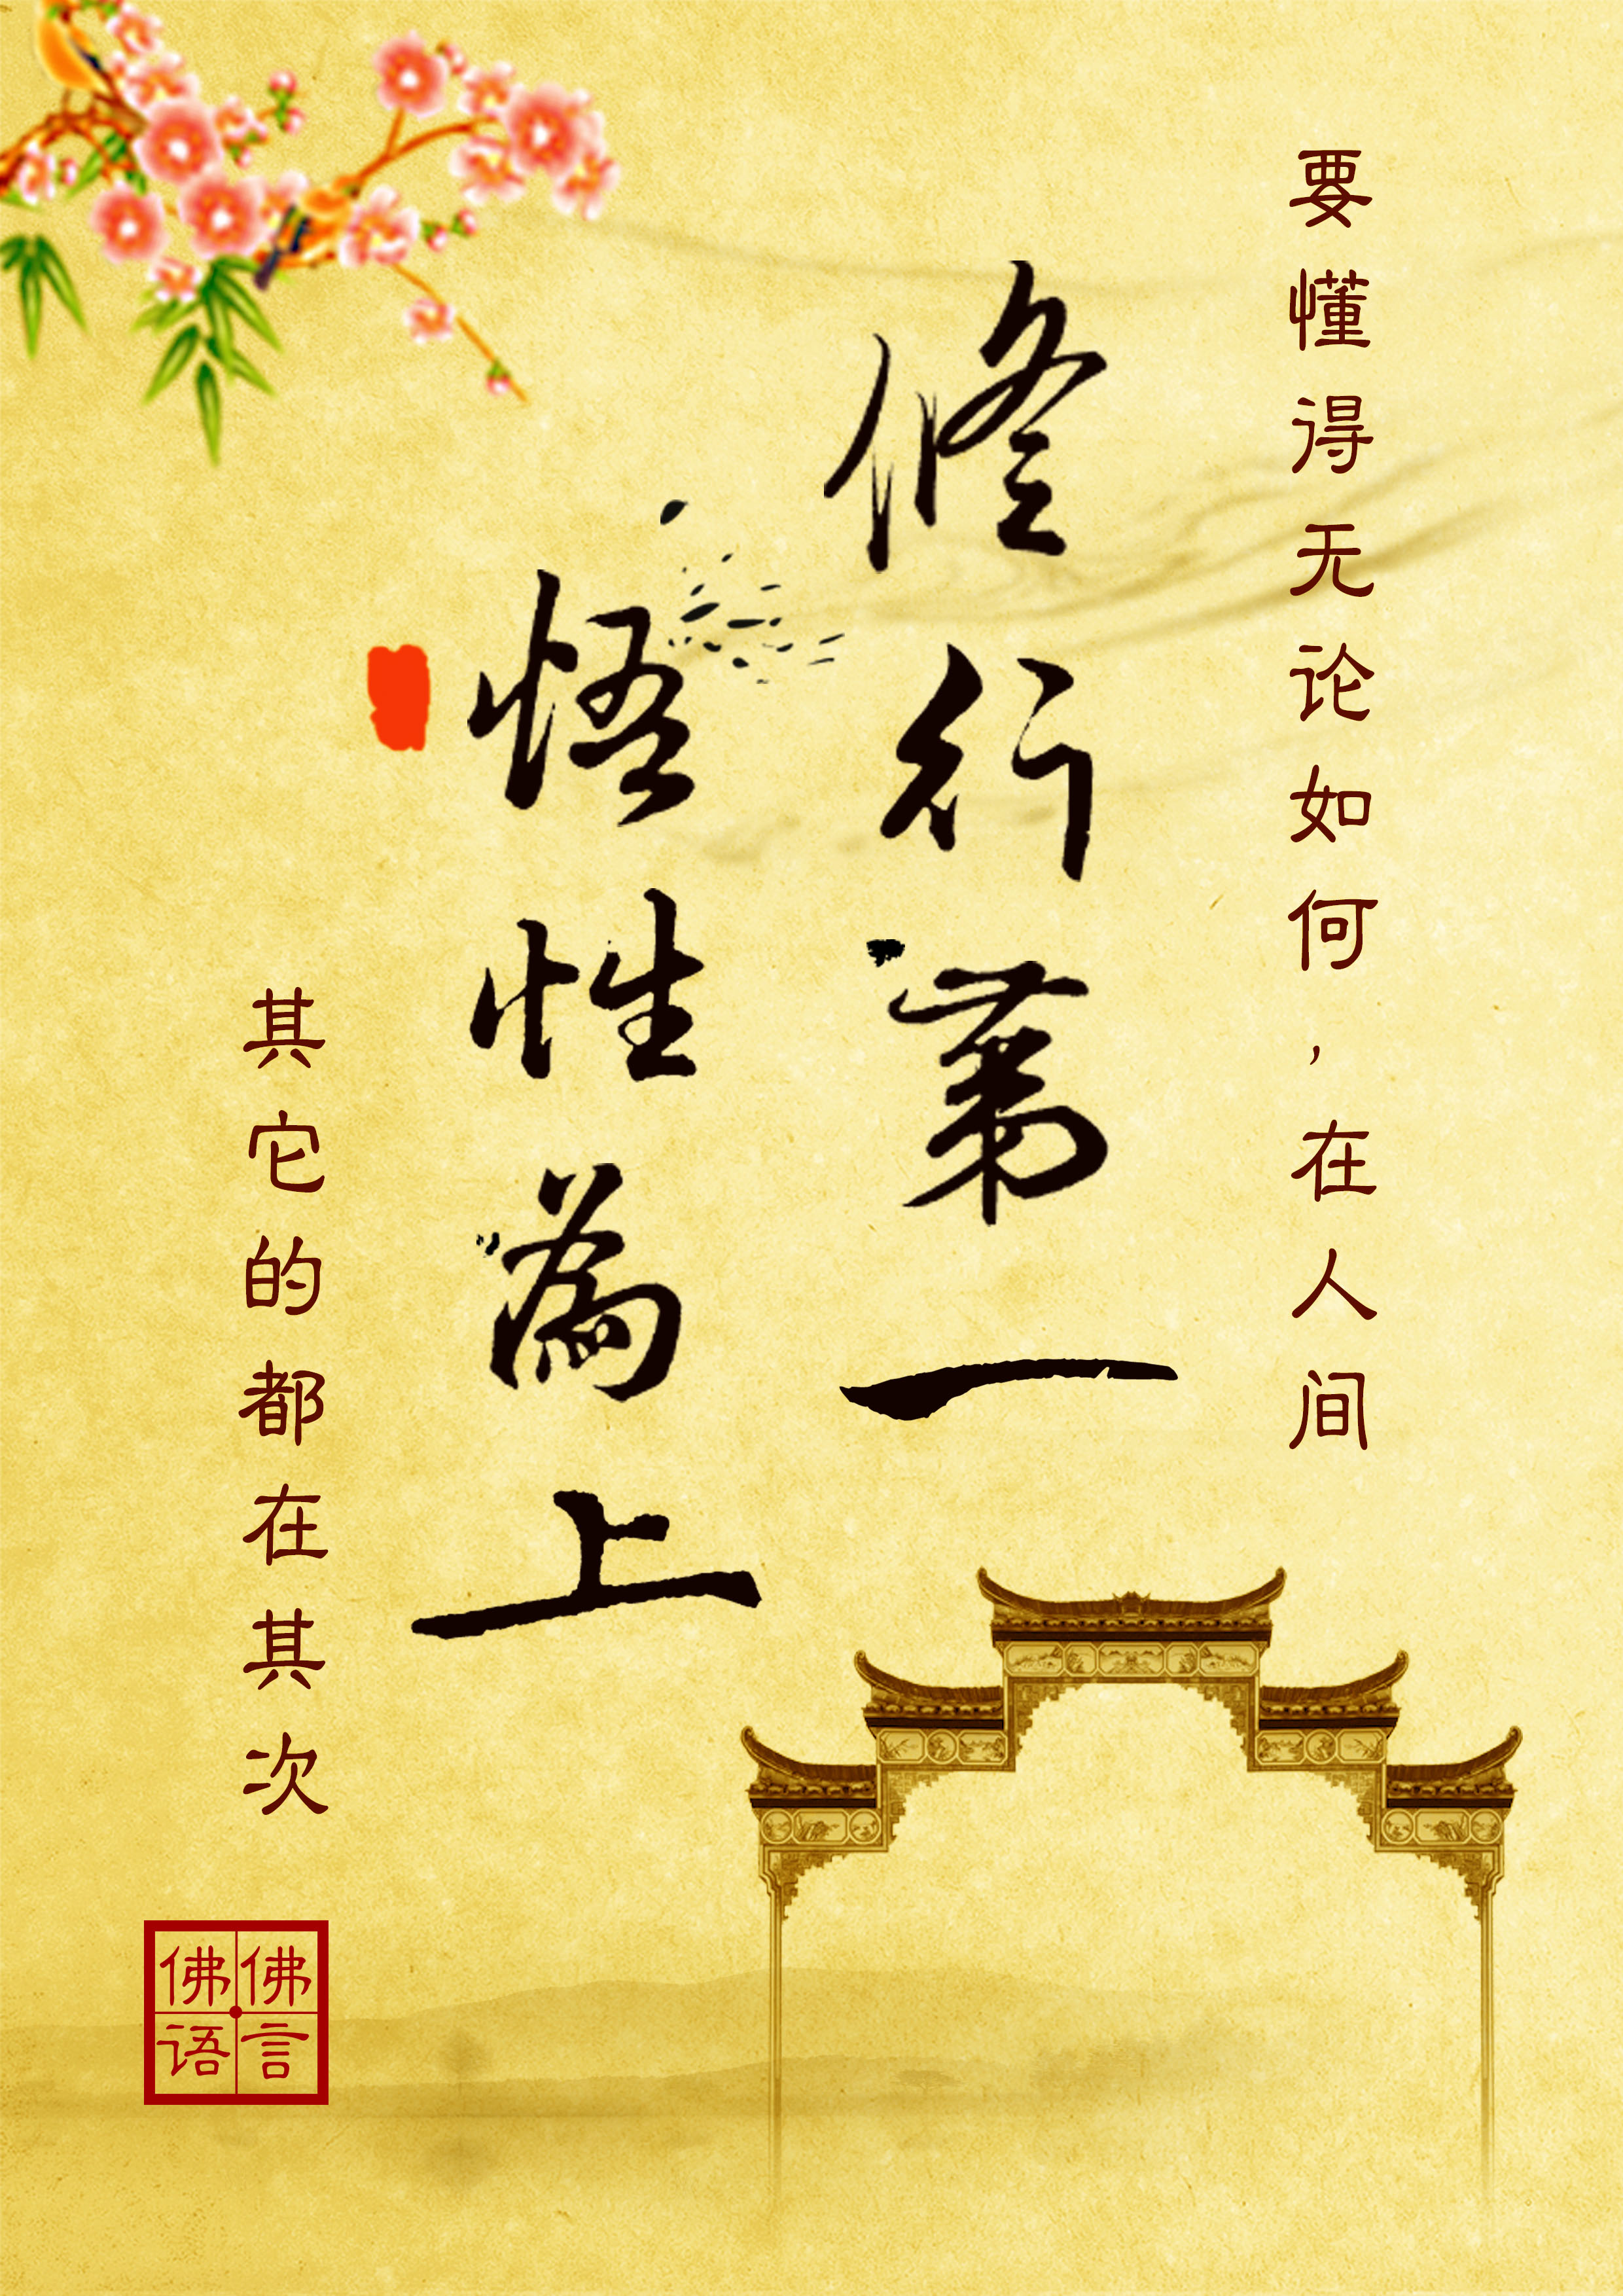 要懂得无论如何，在人间
修行第一
悟性為上
其它的都在其次
佛言
佛语